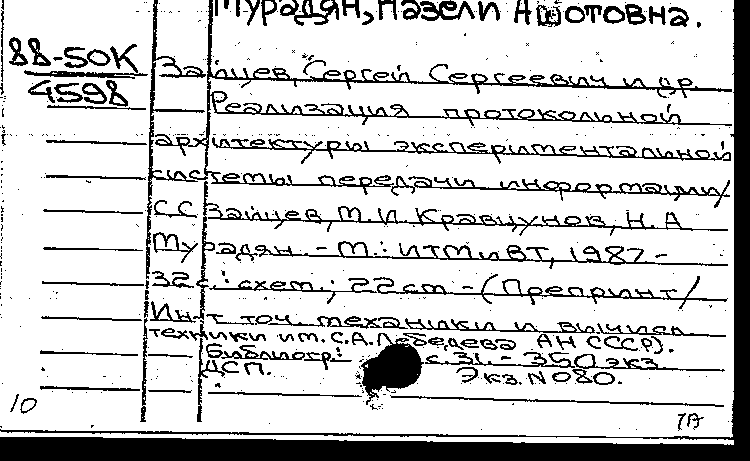 Мурадян, Назели Ашотовна.
88-50К
4598
Зайцев, Сергей Сергеевич и др.
Реализация протокольной
архитектуры экспериментальной
системы передачи информации/
С.С. Зайцев, М.И. Кравцунов, Н.А.
Мурадян. - М.: ИТМиВТ, 1987 -
32с.: схем.; 22cm - (Препринт/
Ин-т точ. механики и вычисл.
техники им. С.А. Лебедева АН СССР).
Библиогр.: с.31. - 350 экз.
ДСП. Экз. N 080.
10